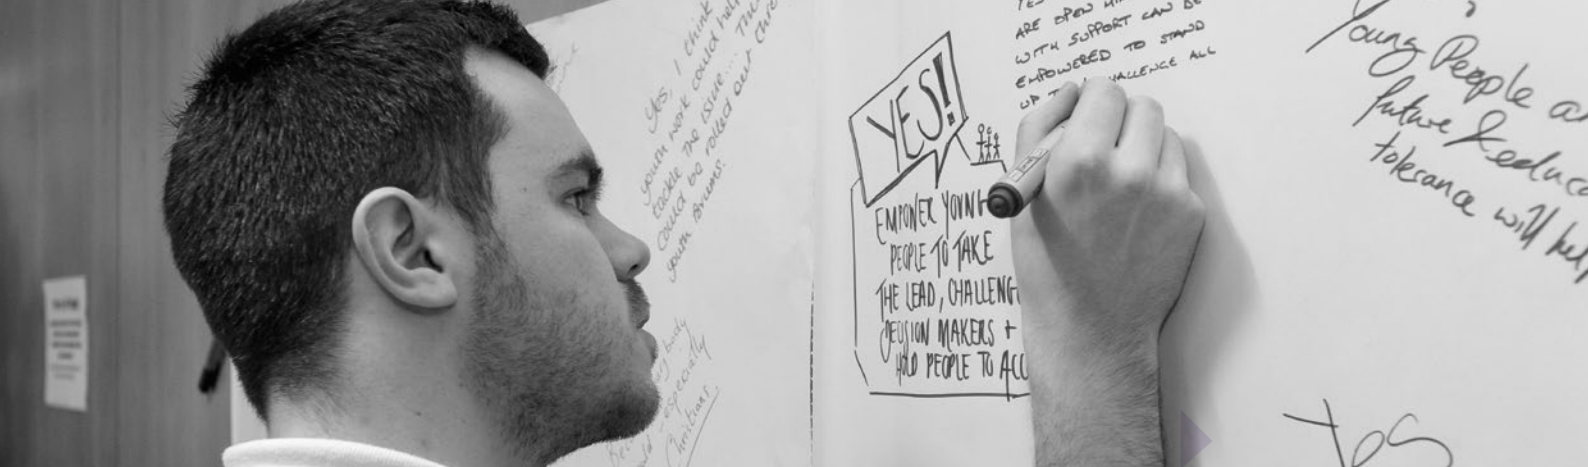 Yes, I think
youth work could help
tackle the issue... The
could be rolled out
youth forums.
especially
Christians
YES!
EMPOWER YOUNG
PEOPLE TO TAKE
THE LEAD, CHALLENG
DECISION MAKERS +
HOLD PEOPLE TO ACC
ARE OPEN
WITH SUPPORT CAN BE
EMPOWERED TO STAND
UP CHALLENGE ALL
Young People a
future & educa
tolerance will hel
Yes